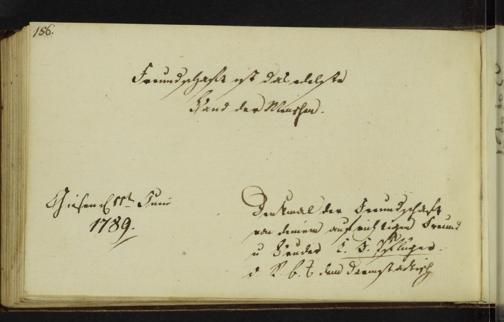 156.
Freundschaft ist das edelste
Band der Menschen.
Giesen d 11t Juni
1789.
Denkmal der Freundschaft
von deinem aufrichtigen Freund
u Bruder
d aus dem Darmstädtisch